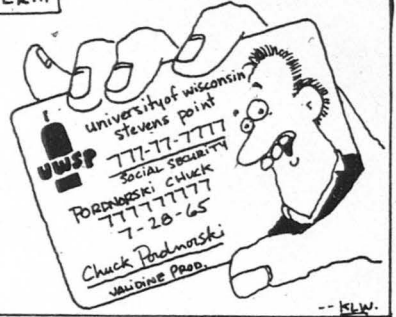 universityof wisconsin
stevens point
UWSP
777-77-7777
SOCIAL SECURITY
PORDNORSKI CHUCK
777777777
7-28-65
Chuck Pordnorski
VALIDINE PROD.
-- KLW.